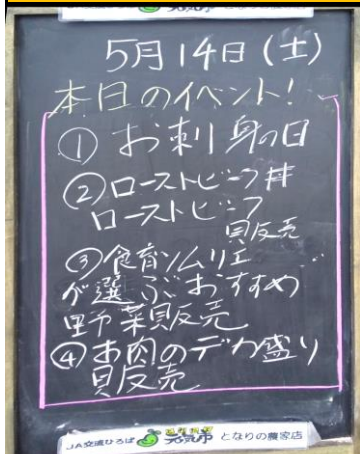 5月14日(土)
本日のイベント!
① お刺身の日
②ローストビーフ丼
ローストビーフ
販売
③食育ソムリエ
が選ぶおすすめ
野菜販売
④お肉のデカ盛り
販売
JA交流ひろば 元気市 となりの農家店